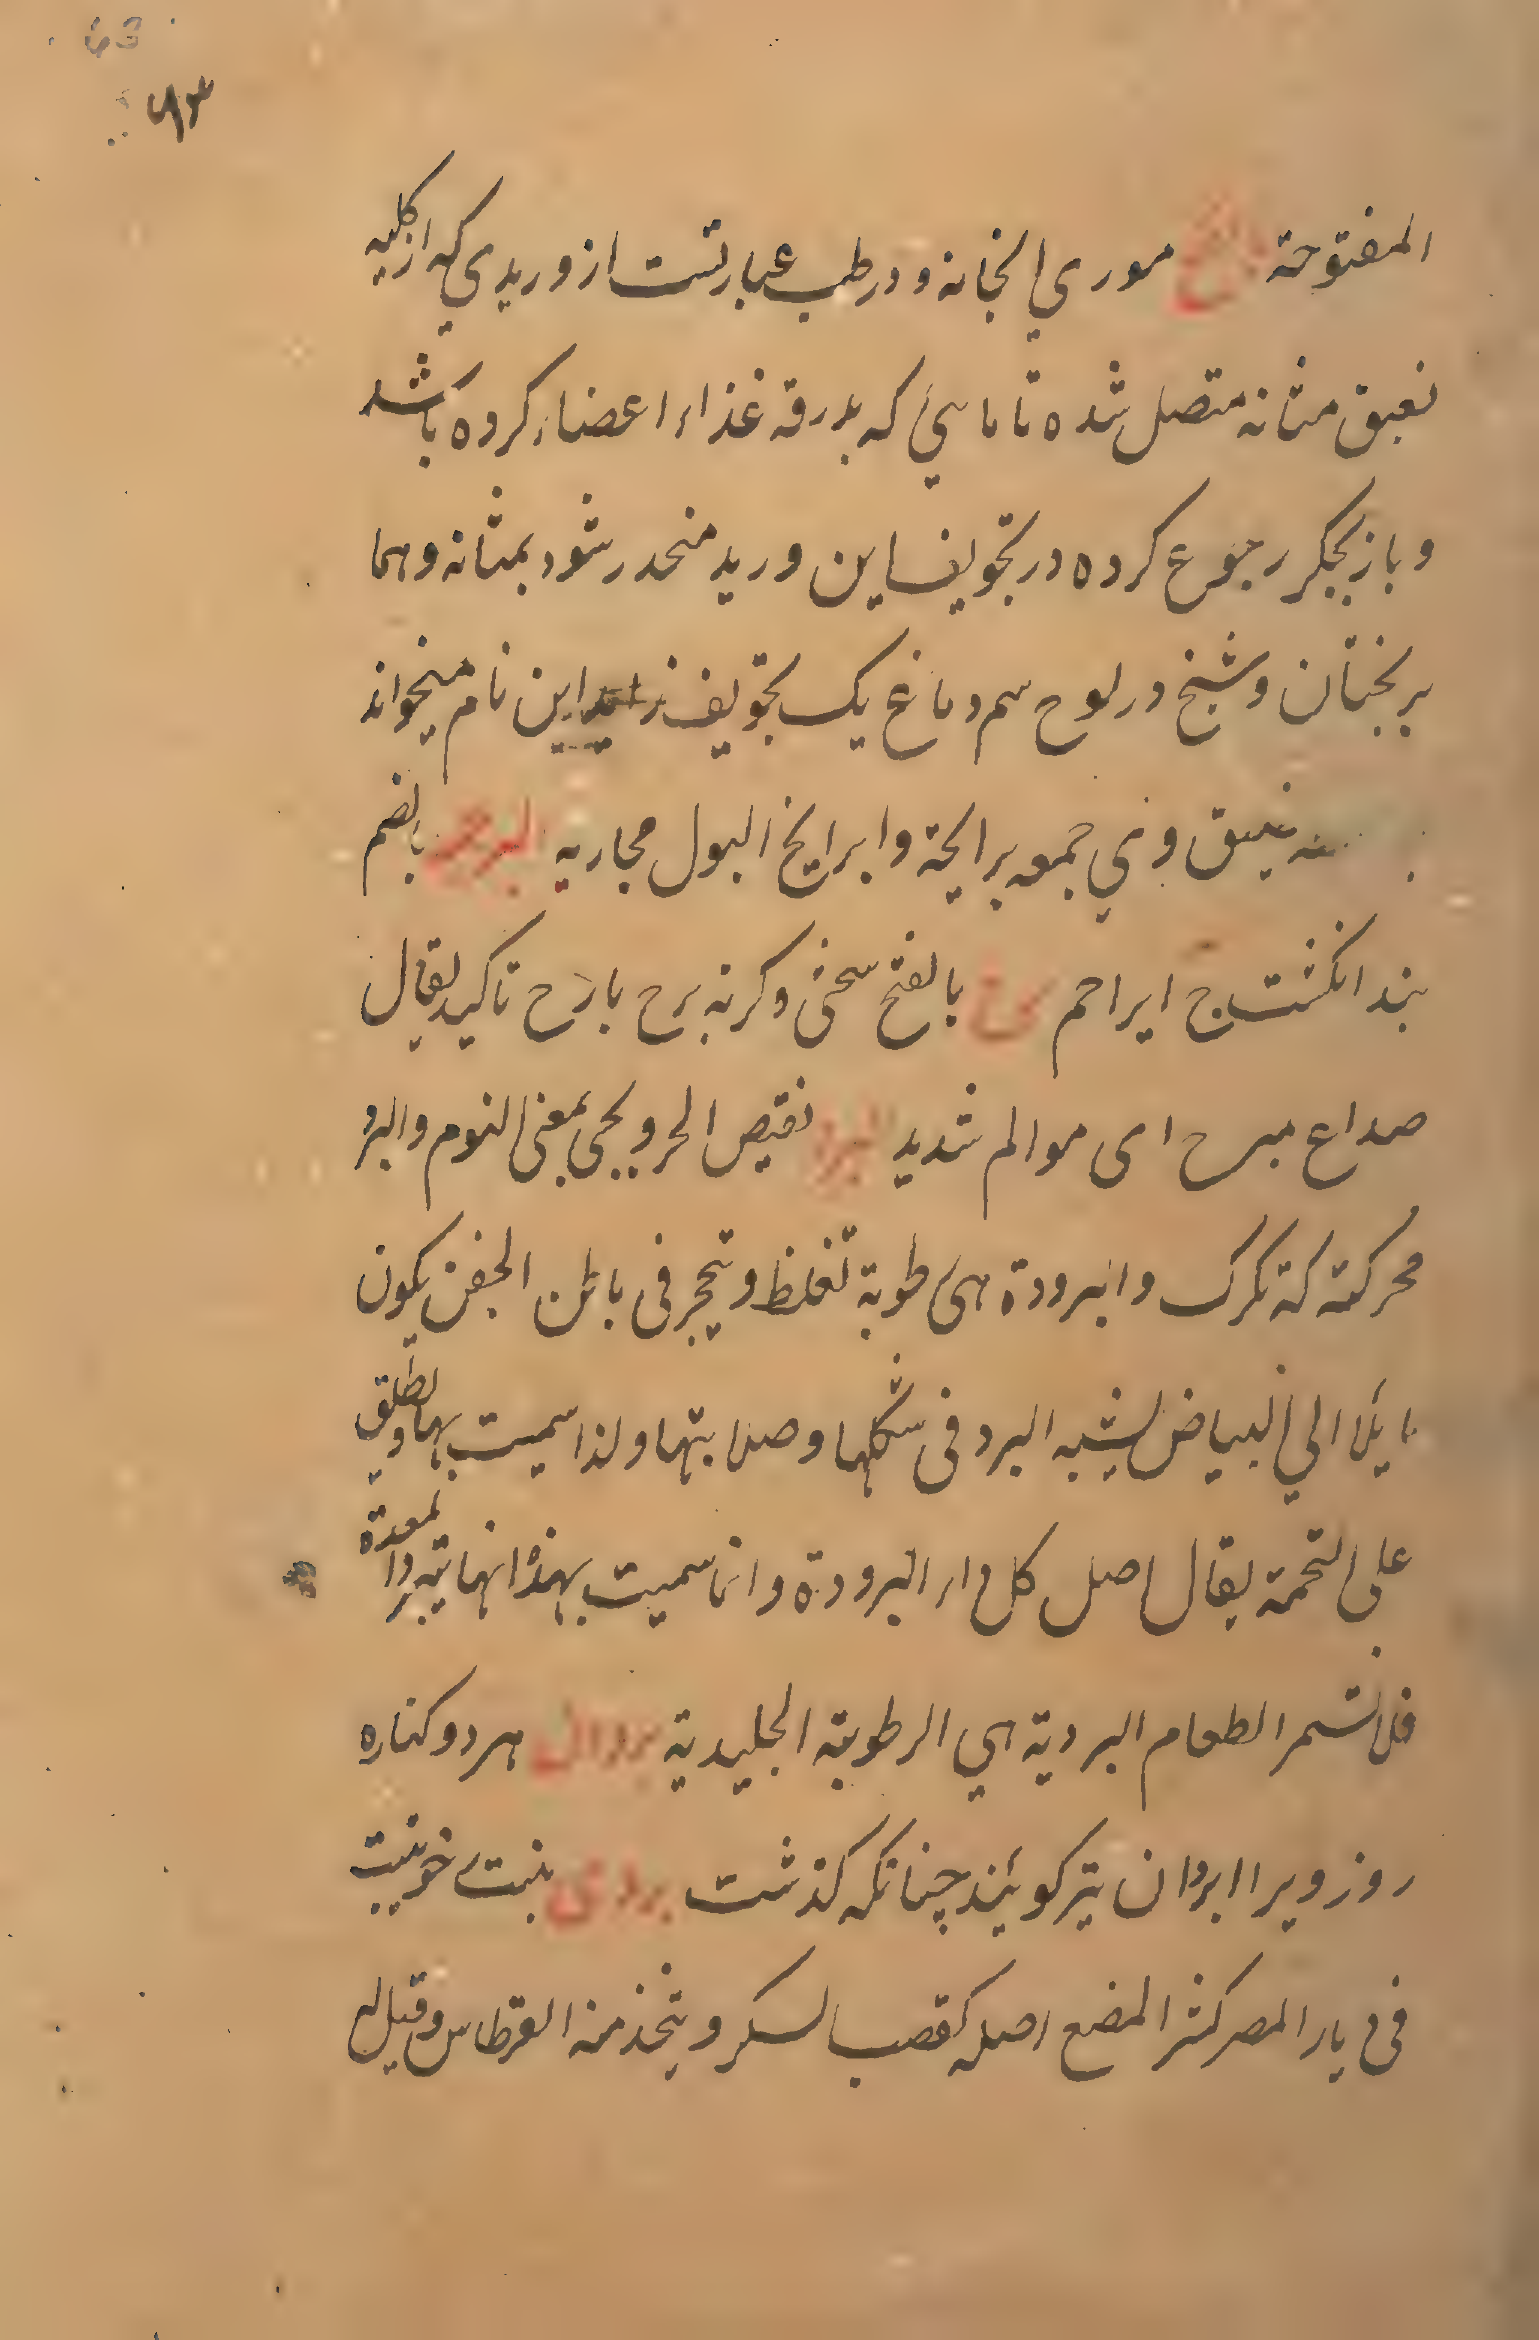 63
٦٣
المفتوحة موري الخانه و در طب عبارتست از وریدي که از کلیه
بعبق مثانه متصل شده تا مایئ که بدرقه غذاء اعضاء کرده باشد
و باز بجکر رجوع کرده در تجویف این ورید منحدر شود بمثانه و هما
بربخبتان و شیخ در لوح سم دماغ یک تجویف زاید این نام میخواند
وي جمعه برابخة و ابرابخ البول مجاریه البرجم بالضم
بند انکشت ج ابراجم برح بالفتح سختی و کرنه برح بارح تاکید یقال
صداع مبرح ای موالم شدید البرد نقیض الحر و یجی بمعنی النوم والبرد
محرکته کة تکرک والبرودة هی رطوبة تغلظ و تتحجر فی باطن الجفن یکون
مایلا الي البیاض یشبه البرد فی شکلها و صلابتها و لذا سمیت بها و یطلق
علی التخمة یقال اصل کل داء البرودة و انما سمیت بهذا انها تبرد المعدة
فلا تستمر الطعام البردیة هي الرطوبة الجلیدیة بردان هر دو کناره
روز و یرا ابردان نیز کویند چنانکه کذشت بردی بنت خو ینبت
فی دیار المصر کثیر المضع اصله کقصب السکر و یتخذ منه القرطاس و قیل له